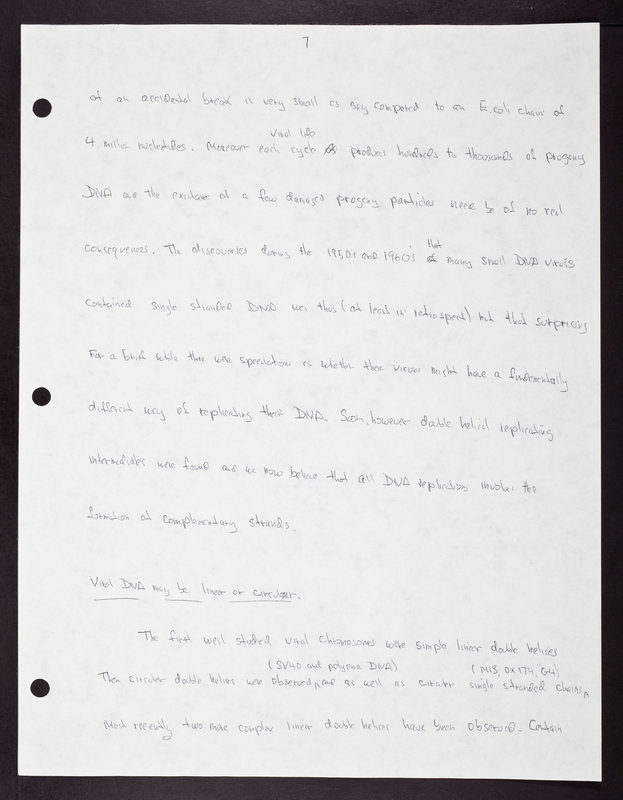 7
of an accidental break is very small as say compared to an E.coli chain of
viral life
4 million nucleotides. Moreover each cycle produces hundreds to thousands of progeny
DNA and the existence of a few damaged progeny particles need be of no real
that
consequences. The discoveries during the 1950's and 1960's many small DNA viruses
contained single stranded DNA was thus (at least in retrospect) not that surprising
For a brief while there were speculations as whether these viruses might have a fundamentally
different way of replicating their DNA. Soon, however double helical replicating
intermediates were found and we now believe that all DNA replication involves the
formation of complementary strands.
Viral DNA may be linear or circular.
The first well studied viral chromosomes were simple linear double helices
(SV40 and polyoma DNA) (M13, OX174, G4)
Then circular double helices were observed, and as well as circular single stranded chains
Most recently two more complex linear double helices have been observed. Certain